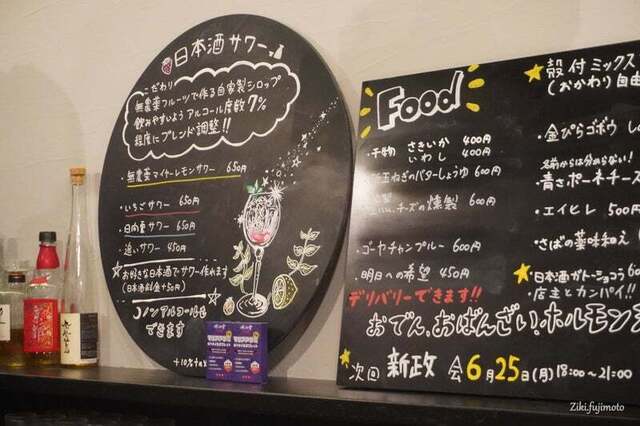 日本酒サワー
こだわり
無農薬フルーツで作る自家製シロップ
飲みやすいよう アルコール度数 7%
程度にブレンド調整!!
・無農薬マイヤーレモンサワー 650円
・いちごサワー 650円
・日向夏サワー 650円
・追いサワー 450円
お好きな日本酒でサワー作れます
ノンアルコールも
できます
+10%tax
Food
・干物 さきいか 400円
いわし 400円
玉ねぎのバターしょうゆ 600円
チーズの燻製 600円
・ゴーヤチャンプルー 600円
・明日への希望 450円
デリバリーできます!!
おでん、おばんざい、ホルモン
次回 新政 会 6月25日(月) 18:00〜21:00
殻付ミックス
(おかわり自由
・金ぴらゴボウ
名前からは分からない!
青さポーネチーズ
・エイヒレ 500円
・さばの薬味和え
・日本酒ガトーショコラ 60
・店主とカンパイ!!
Ziki.fujimoto